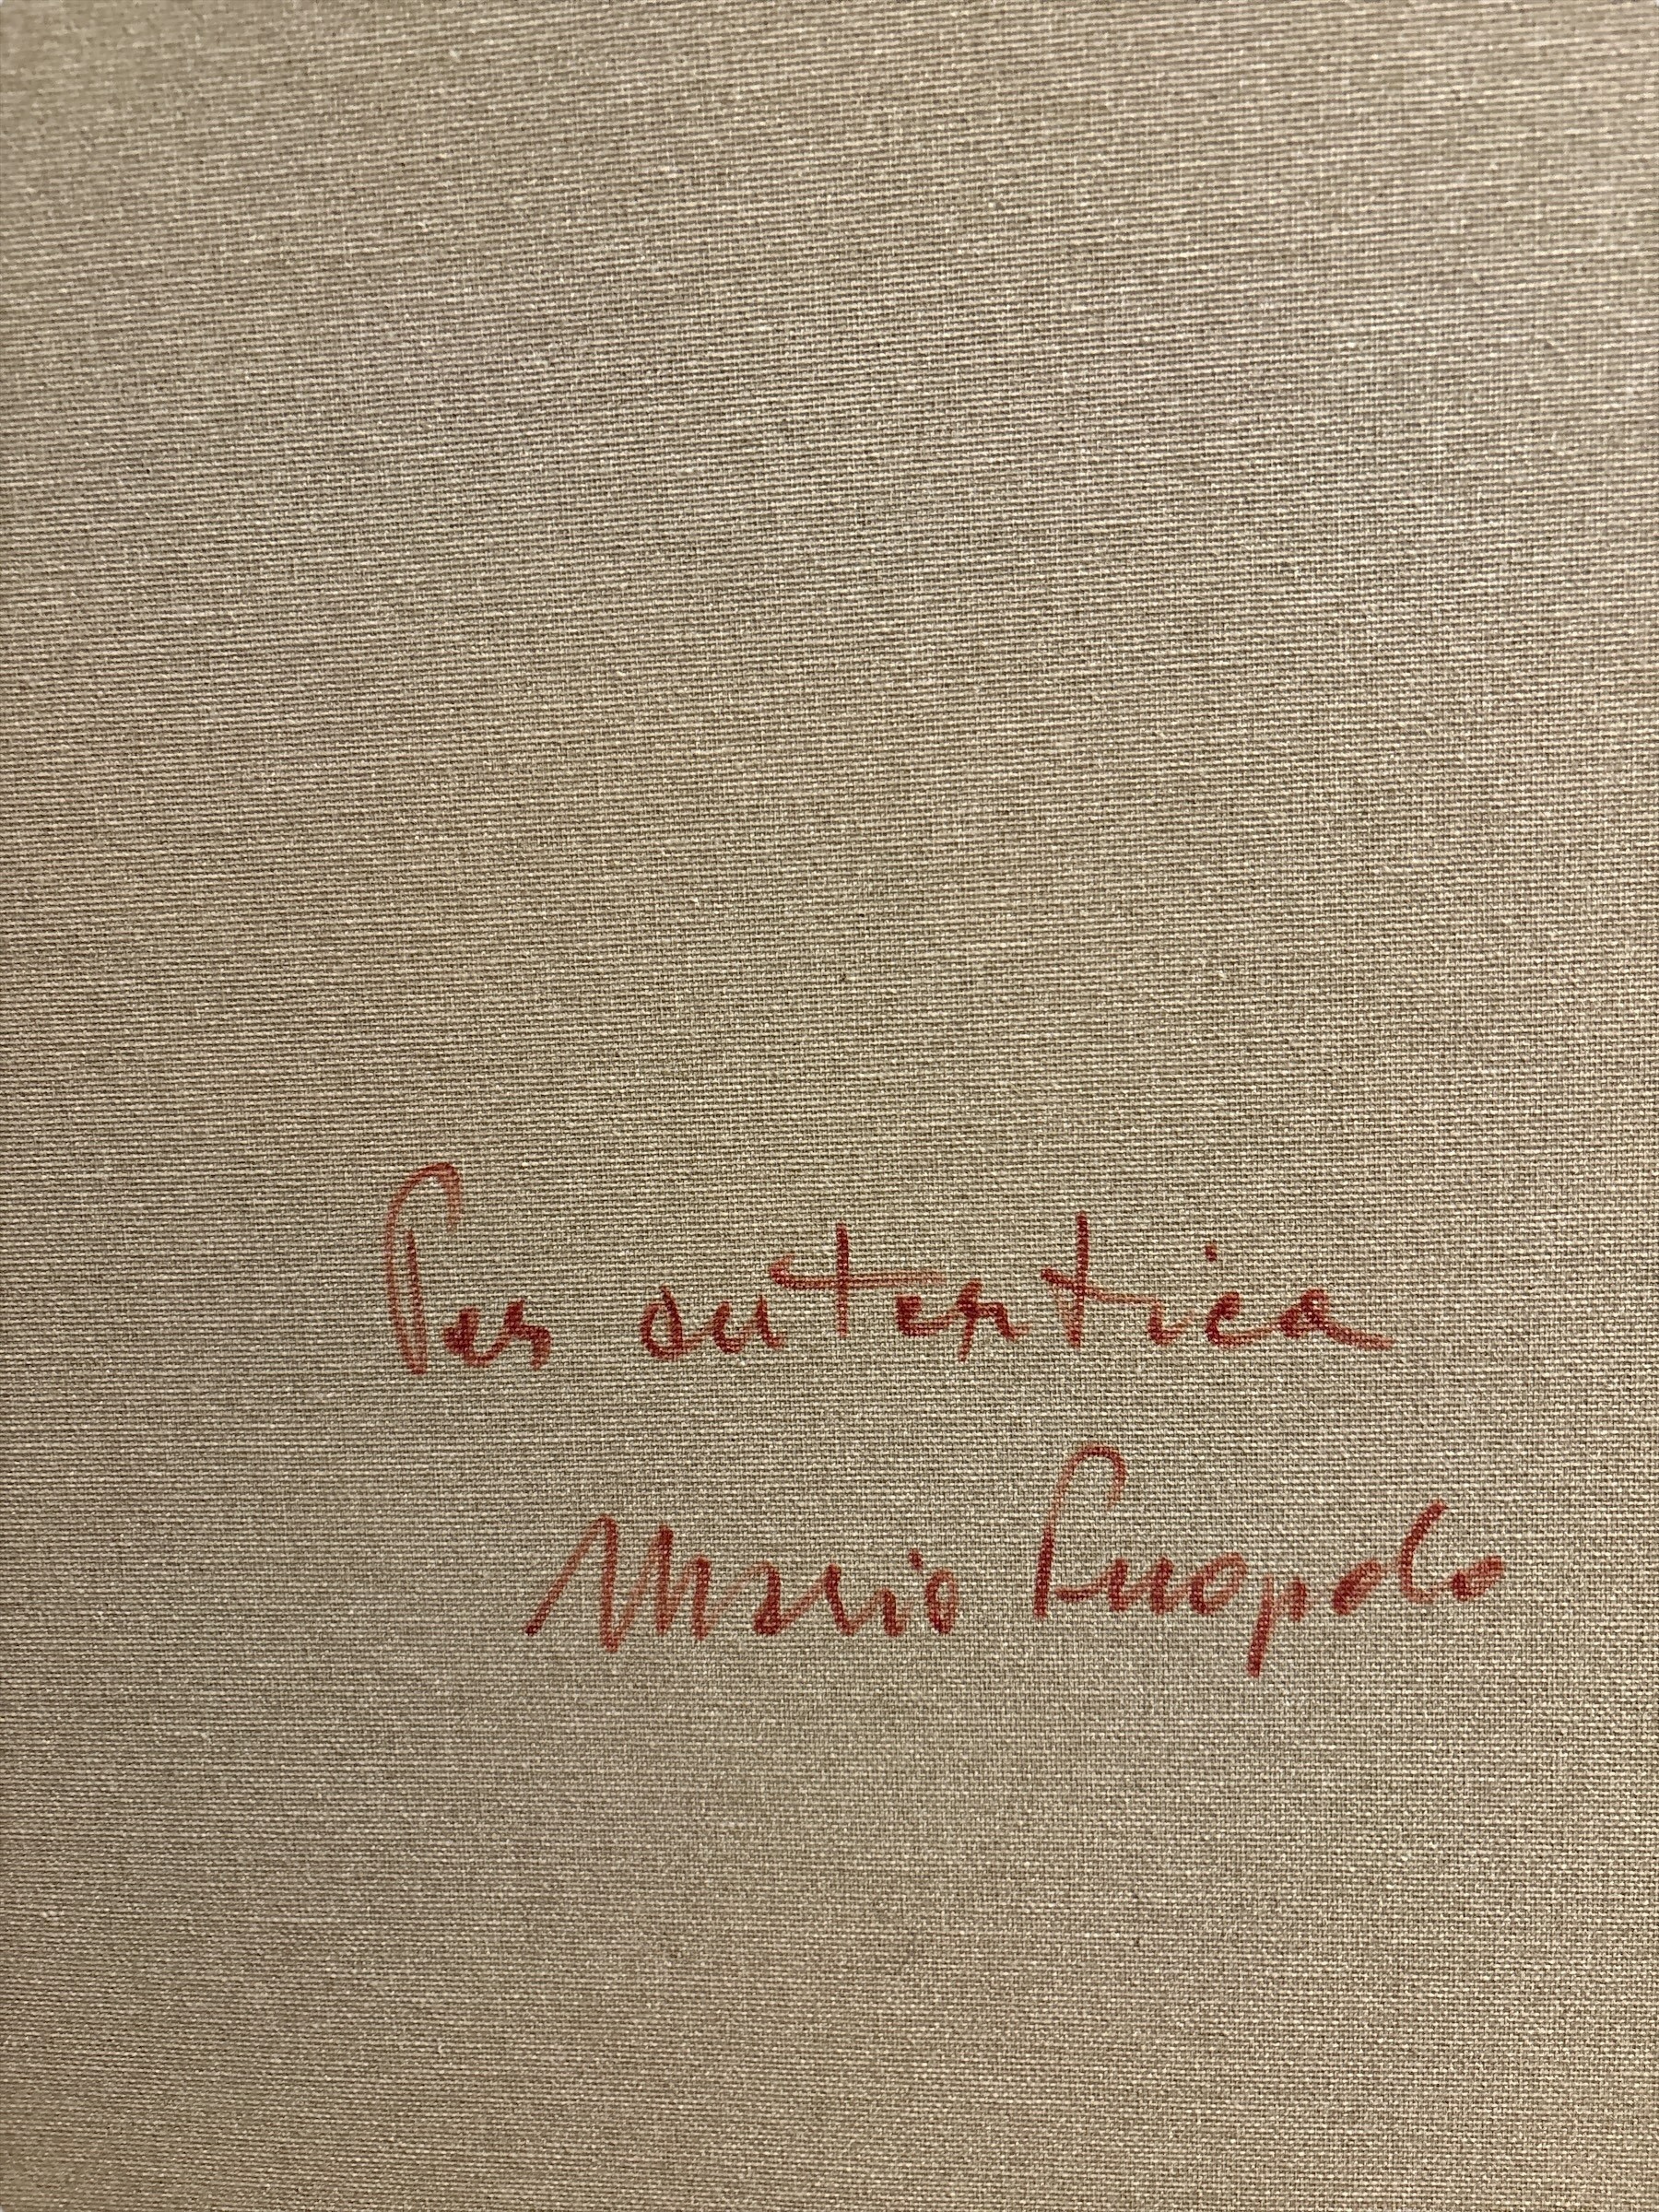 Per autentica
Mario Puopolo